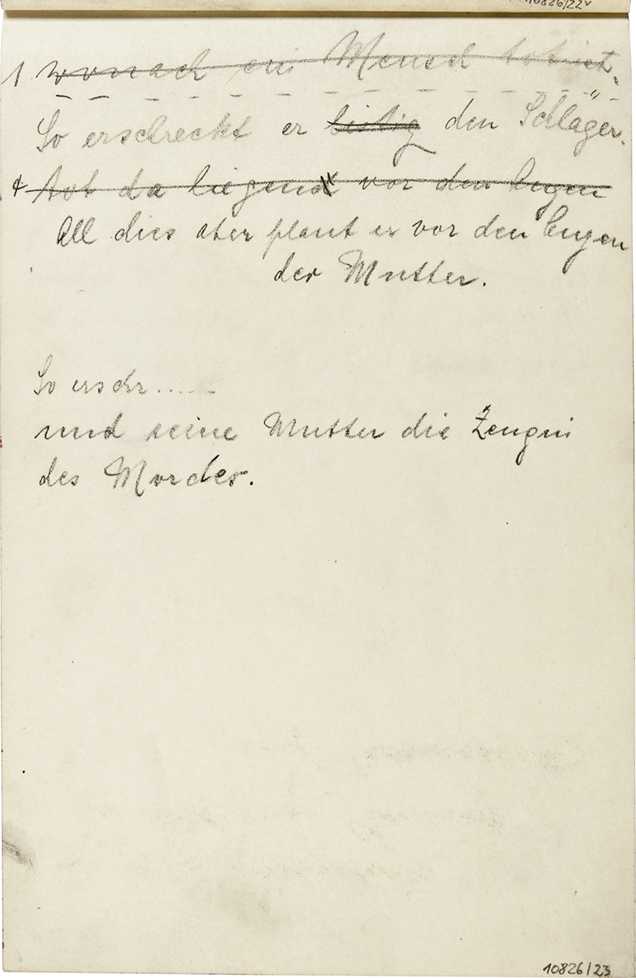 10826/22v
1 wonach ein Mensch tot ist.
So erschreckt er listig den Schläger.
+ tot da liegend vor den Augen
All dies aber plant er vor den Augen
der Mutter.
So erschr.....
und seine Mutter die Zeugin
des Mordes.
10826/23